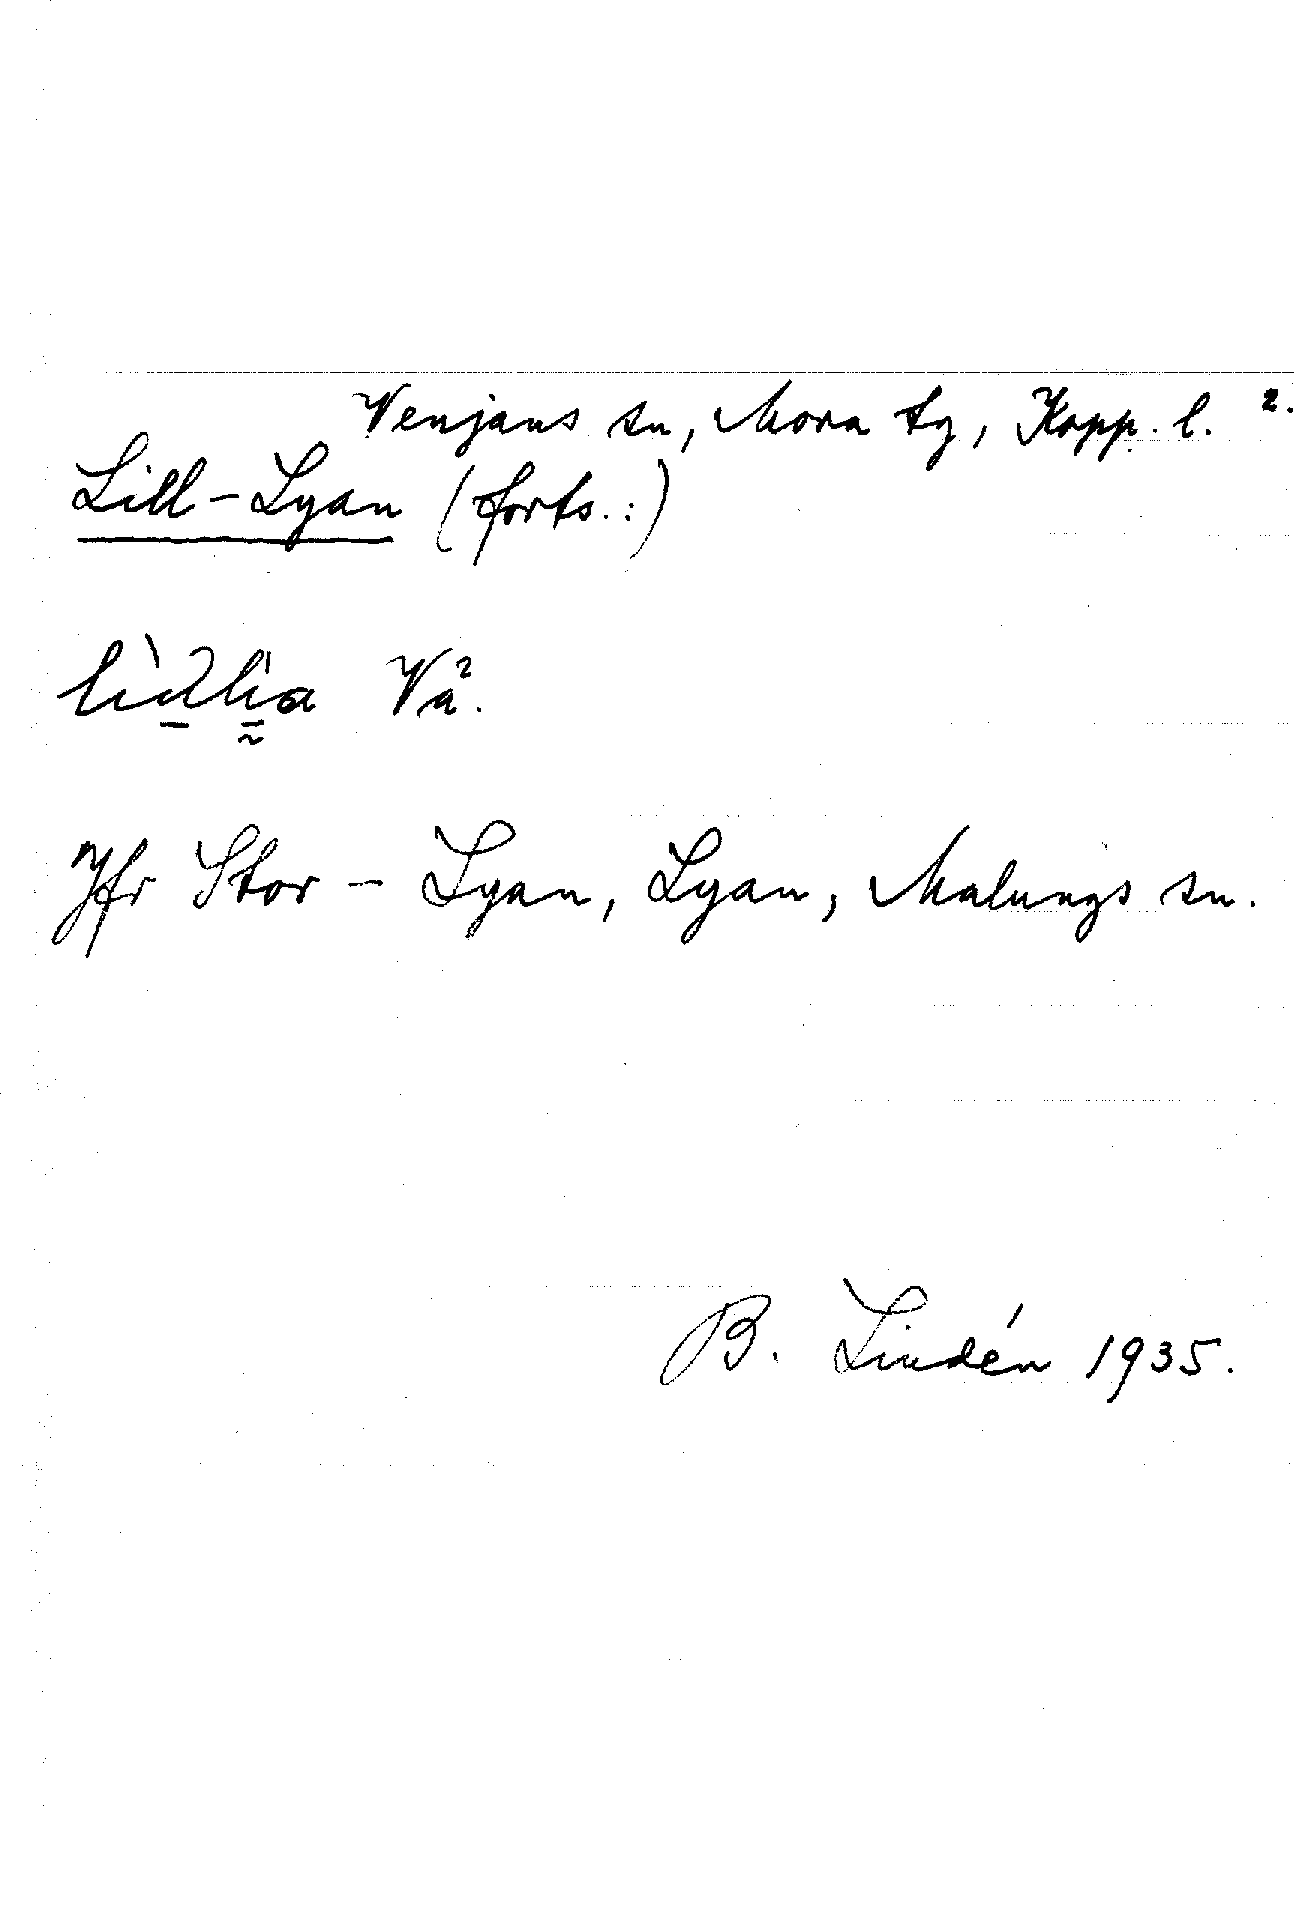 Venjans sn, Mora tg, Kopp. l. 2.
Lill-Lyan (forts.:)
Vå².
Jfr Stor-Lyan, Lyan, Malungs sn.
B. Lindén 1935.